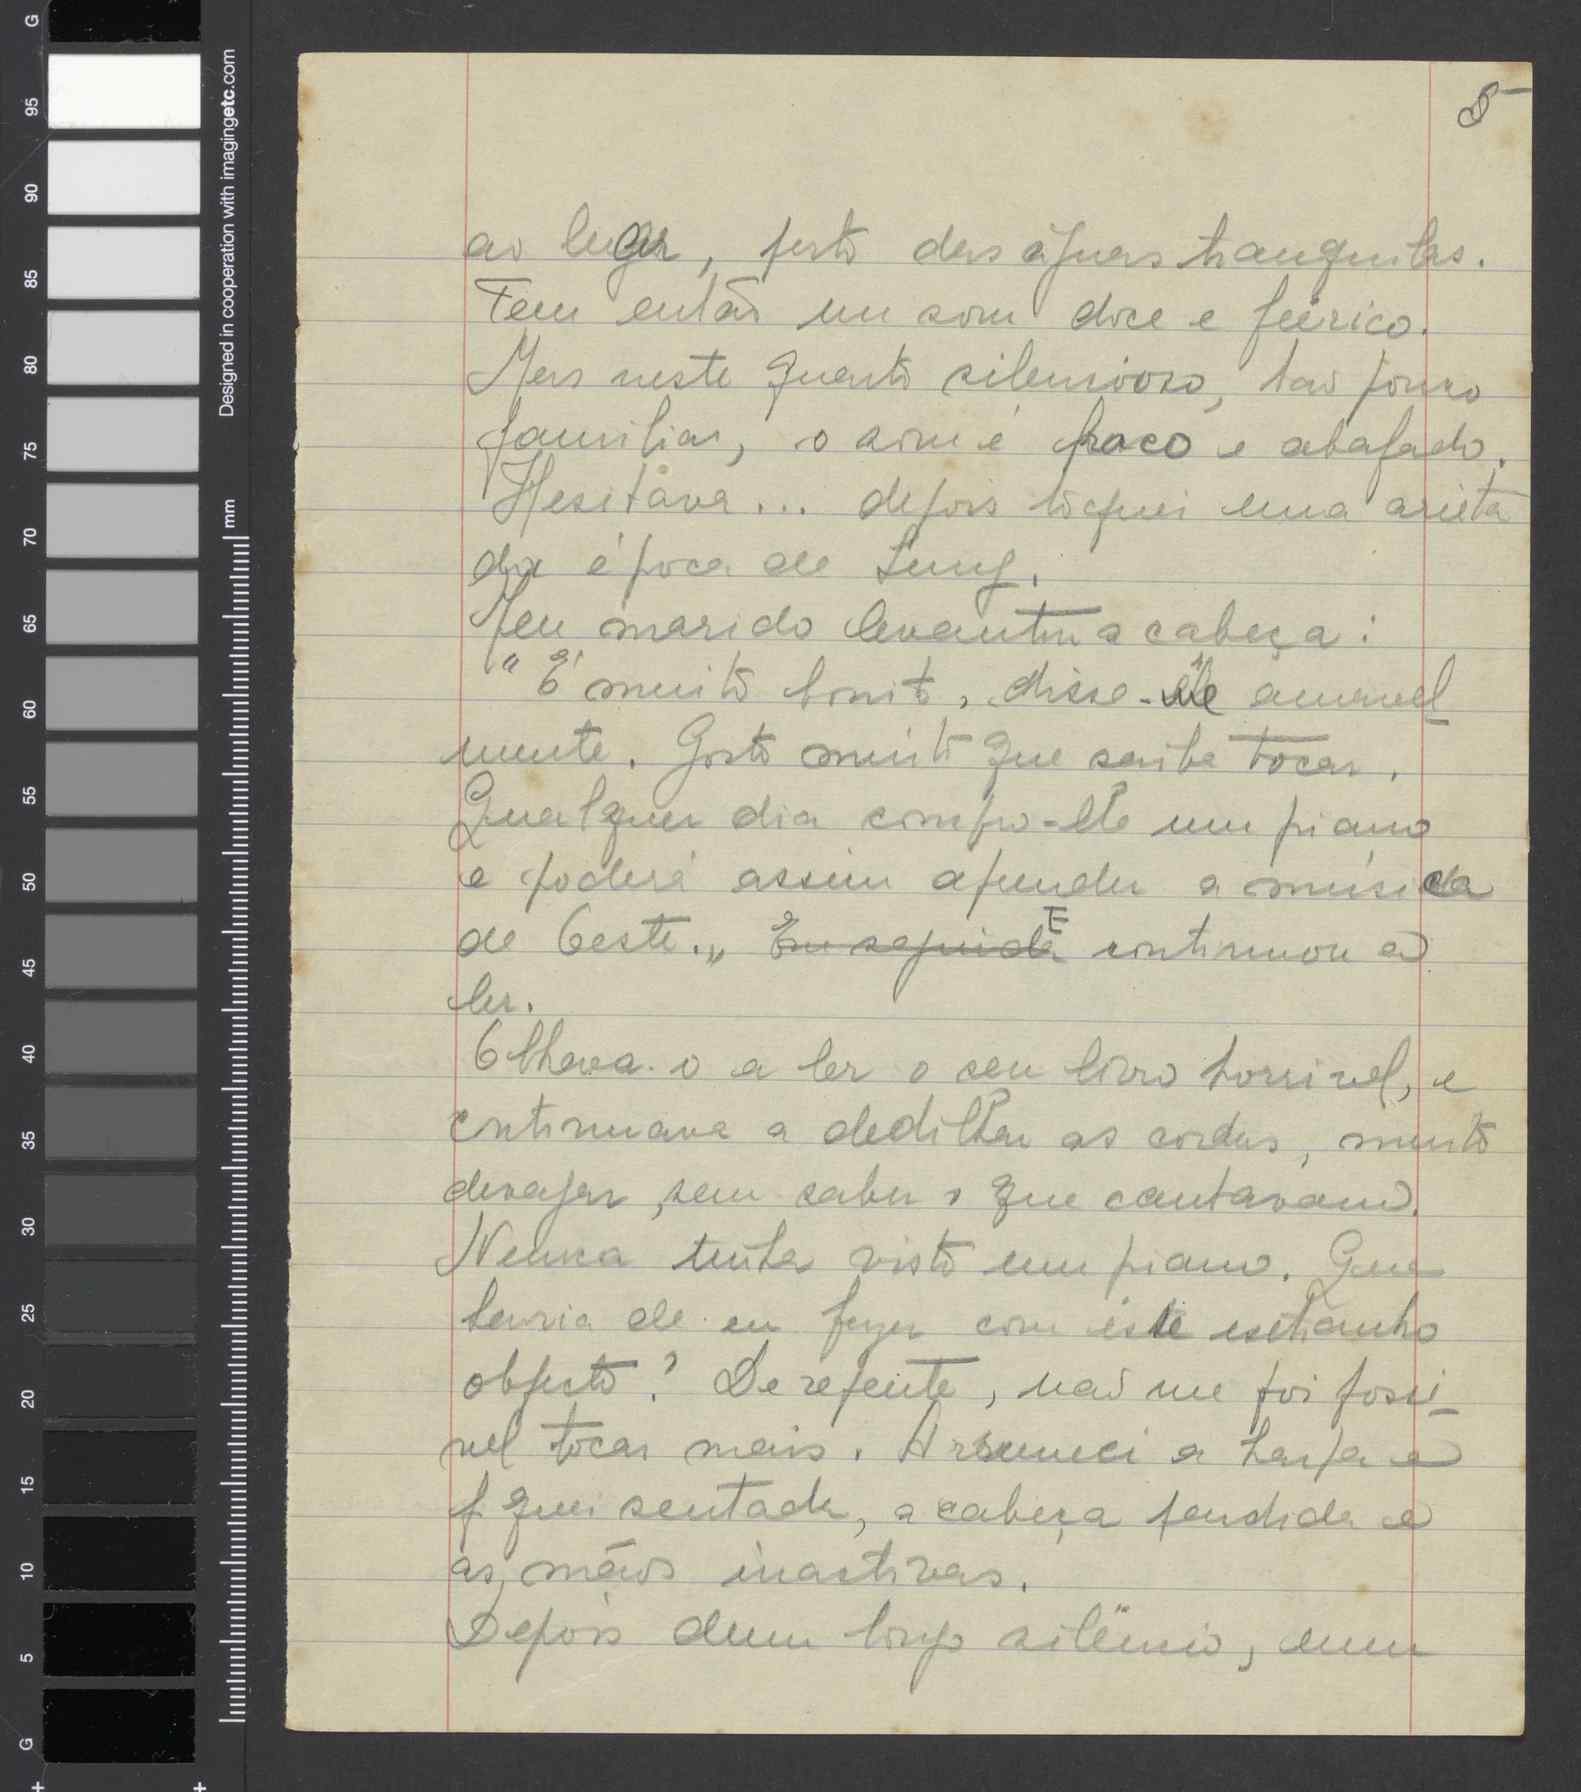 5
ao lugar, perto das águas tranquilas.
Tem então um som doce e feérico.
Mas neste quarto silencioso, tão pouco
familiar, o som é fraco e abafado.
Hesitava... depois toquei uma arieta
da época de Sung.
Meu marido levantou a cabeça:
"É muito bonito, disse-me êle amavel-
mente. Gosto muito que saiba tocar.
Qualquer dia compro-lhe um piano
e poderá assim aprender a música
de Oeste." Em seguida E continuou a
ler.
Olhava-o a ler o seu livro horrivel, e
continuava a dedilhar as cordas, muito
devagar, sem saber o que cantavam.
Nunca tinha visto um piano. Que
havia de eu fazer com êste estranho
objecto? De repente, não me foi possi-
vel tocar mais. Arrumei a harpa e
fiquei sentada, a cabeça pendida e
as mãos inactivas.
Depois dum longo silêncio, dum
G
95
90
85
80
75
70
65
60
55
50
45
40
35
30
25
20
15
10
5
G
Designed in cooperation with imagingetc.com
mm